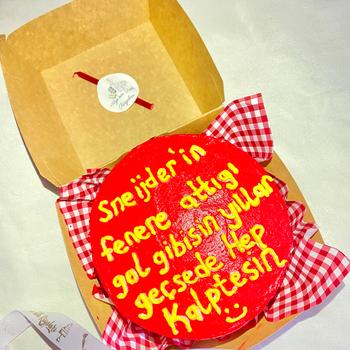 Sneijder'in
fenere attığı
gol gibisin yıllar
geçsede Hep
Kalptesin